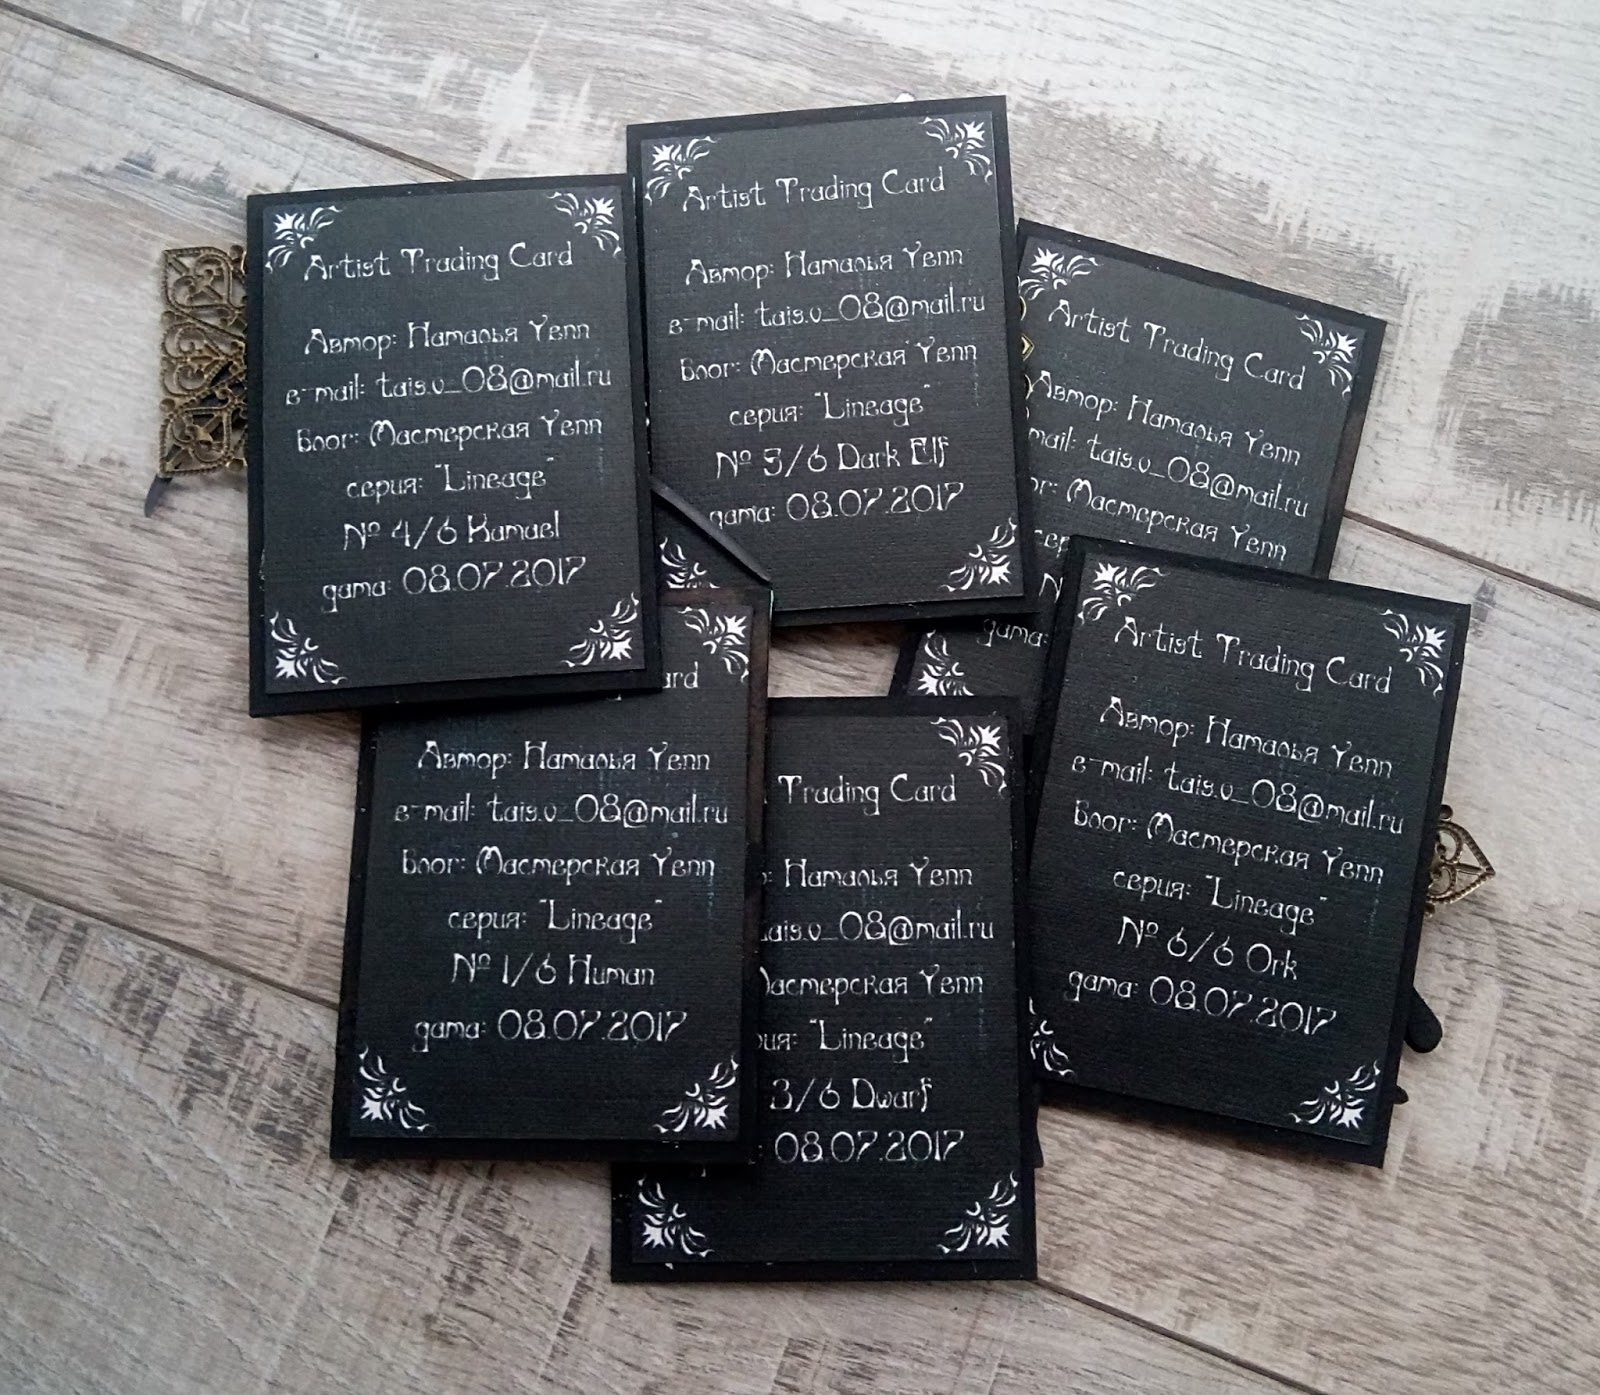 Artist Trading Card
Автор: Наталья Yenn
e-mail: tais.v_08@mail.ru
Блог: Мастерская Yenn
серия: "Lineage"
№ 4/6 Kamael
дата: 08.07.2017
Artist Trading Card
Автор: Наталья Yenn
e-mail: tais.v_08@mail.ru
Блог: Мастерская Yenn
серия: "Lineage"
№ 5/6 Dark Elf
дата: 08.07.2017
Artist Trading Card
Автор: Наталья Yenn
mail: tais.v_08@mail.ru
ог: Мастерская Yenn
сер
№
дата:
ard
Автор: Наталья Yenn
e-mail: tais.v_08@mail.ru
Блог: Мастерская Yenn
серия: "Lineage"
№ 1/6 Human
дата: 08.07.2017
Trading Card
Наталья Yenn
tais.v_08@mail.ru
Мастерская Yenn
рия: "Lineage"
3/6 Dwarf
08.07.2017
Artist Trading Card
Автор: Наталья Yenn
e-mail: tais.v_08@mail.ru
Блог: Мастерская Yenn
серия: "Lineage"
№ 6/6 Ork
дата: 08.07.2017